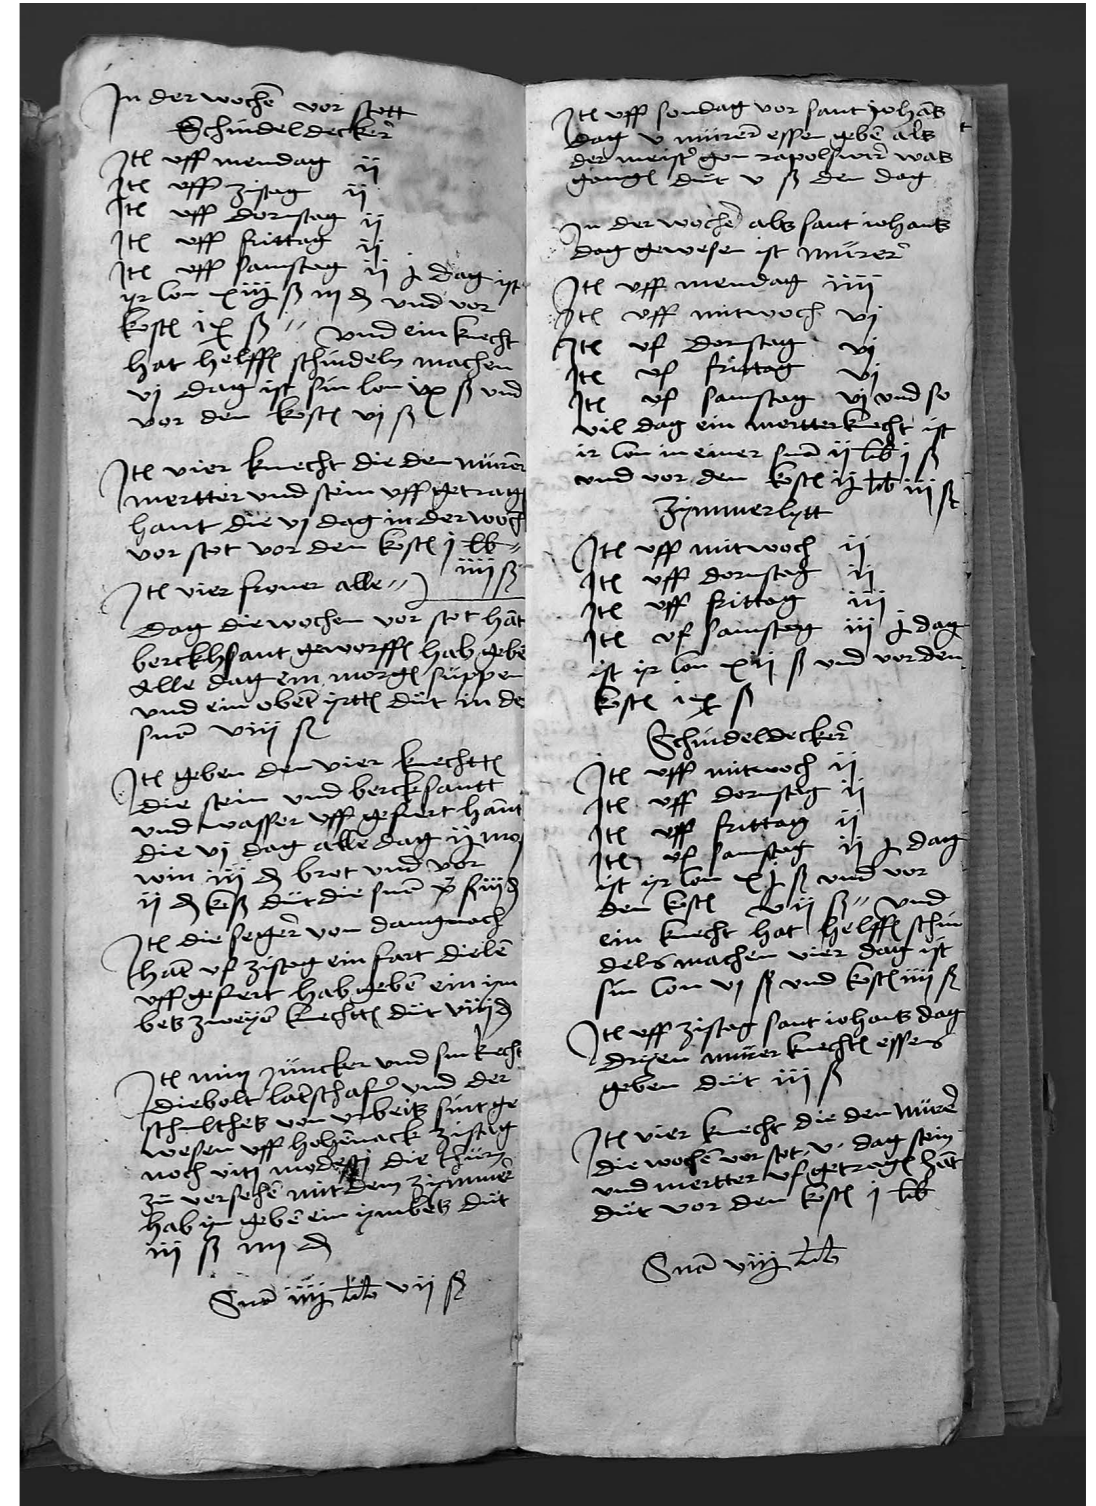 In der wochē vor stott
Schindeldecker̄
Itē vff mendag ij
Itē vff zistag ij
Itē vff dornstag ij
Itē vff frittag ij
Itē vff samstag ij j dag ist
yr lon xiij ß iij d vnd vor
kostē ix ß vnd ein knecht
hat helffē schindeln machen
vj dag ist sin lon ix ß vnd
vor den kostē vj ß
Itē vier knecht die den mürer̄
mertter vnd stein vff getragē
hant die vj dag in der woch
vor stot vor den kostē j lb
iiij ß
Itē vier froner alle
dag die wochen vor stot hāt
berckhsant geworffē hab gebē
alle dag ein morgē süppen
vnd ein obēt yrttē düt in de
sum̄ viij ß
Itē geben den vier knechttē
die stein vnd bercksantt
vnd wasser vff gefiert hant
die vj dag alle dag ij mos
win iij d brot vnd vor
ij d keß düt die sum̄ ß iiij d
Itē die seger̄ von danngnach
hāt vf zistag ein fart dielē
vff gefiert hab gebē ein ym
bets zweyē knechttē düt viij d
Itē min jüncker vnd sin knecht
diebolt vnd der
schulthets von vrbeits sint ge
wesen vff hohēnack zistag
noch viti modesti die thürn
zü versehē mit dem zymmer̄
hab yn gebē ein ymbets düt
iij ß iiij d
Sum̄ iiij lb vij ß
Itē vff sondag vor sant johās
dag v mürer̄ essen gebē als
der meist' gon rapolswir̄ was
gangē düt v ß den dag
In der wochē als sant iohans
dag gewesen ist mürer̄
Itē vff mendag iiij
Itē vff mitwoch vj
Itē vf dornstag vj
Itē vf frittag vj
Itē vf samstag vj vnd so
vil dag ein mertterknecht ist
ir lon in einer sum̄ ij lb j ß
vnd vor den kostē ij lb iij ß
Zymmerlytt
Itē vff mitwoch ij
Itē vff dornstag ij
Itē vff frittag iij
Itē vf samstag iij j dag
ist yr lon xij ß vnd vor den
kostē ix ß
Schindeldecker̄
Itē vff mitwoch ij
Itē vff dornstag ij
Itē vff frittag ij
Itē vf samstag ij j dag
ist yr lon xj ß vnd vor
den kostē vij ß vnd
ein knecht hat helffē schin
dels machen vier dag ist
sin lon vj ß vnd kostē iiij ß
Itē vff zistag sant iohans dag
dryen mürer knechtē essens
geben düt iij ß
Itē vier knecht die den mürer̄
die wochē vor stot v dag stein
vnd mertter vf getragē hāt
düt vor den kostē j lb
Sum̄ viij lb